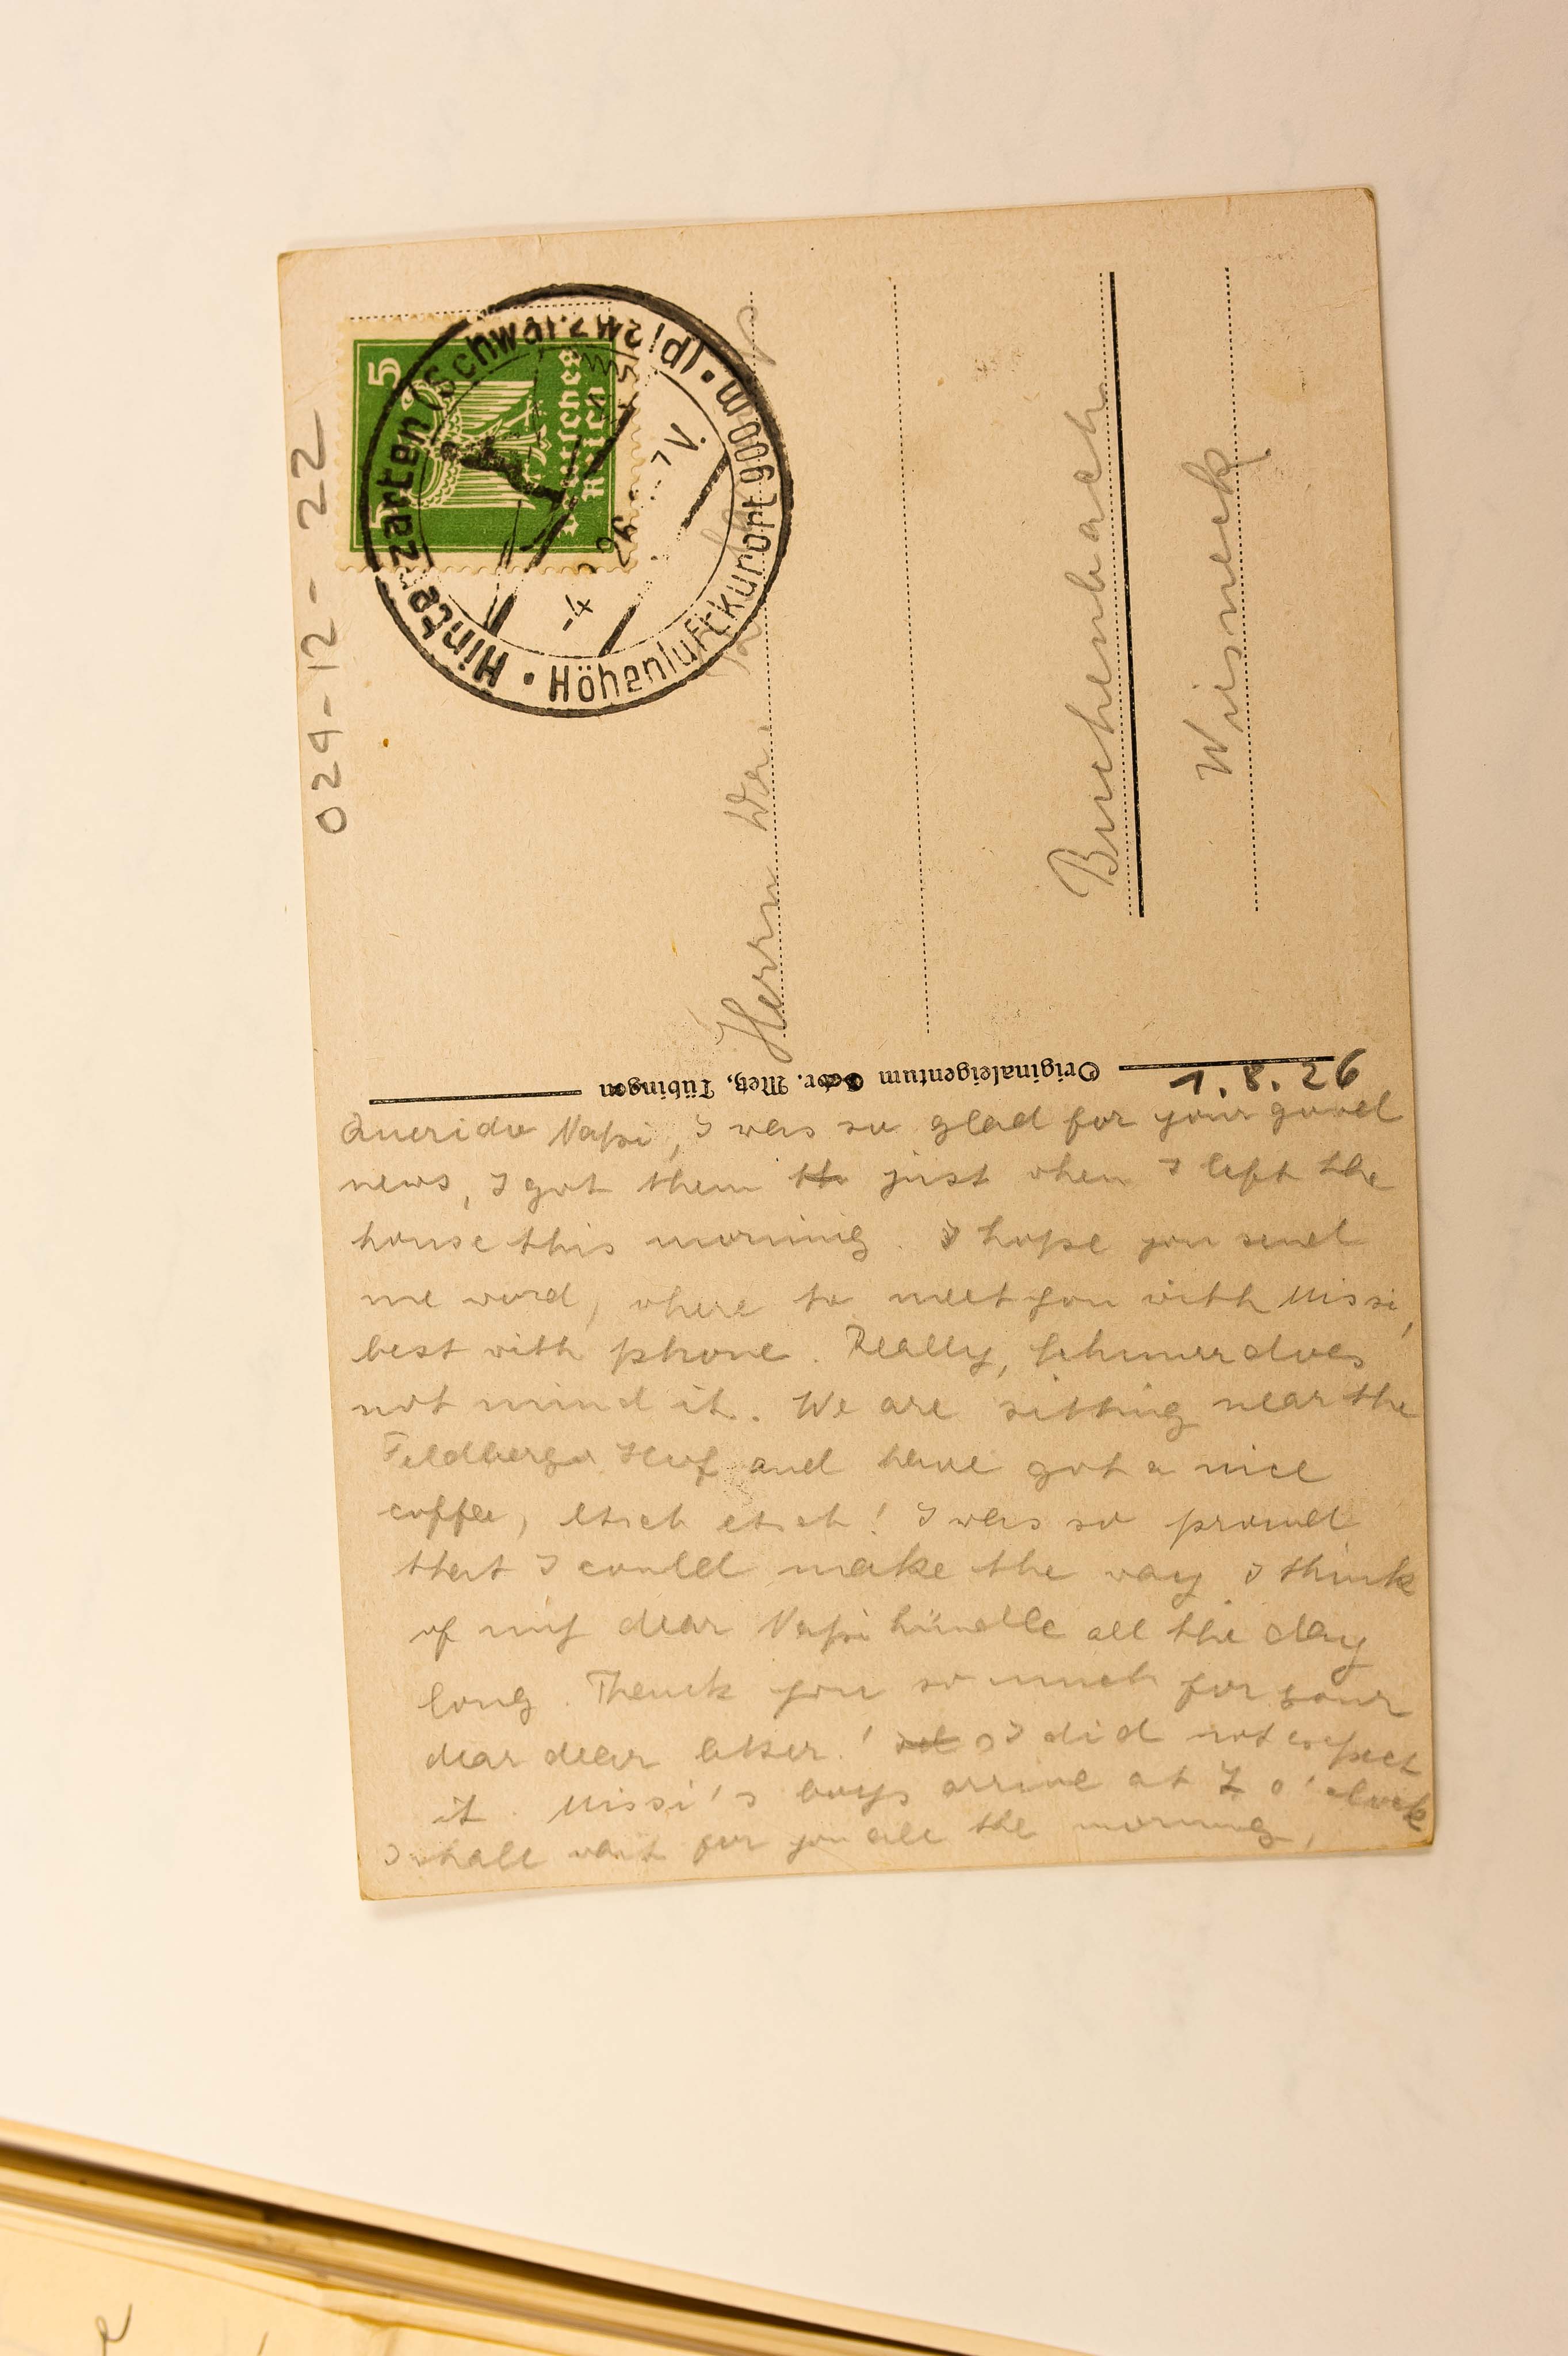 029-12-22
5
5
Deutsches
Reich
Hinterzarten (Schwarzwald) · 900 m
· Höhenluftkurort
-4. 26 ·-7 V.
Herrn Dr.
Buchenbach
Wisneck
Originaleigentum Gebr. Metz, Tübingen
1.8.26
Querido Napsi, I was so glad for your good
news, I got them just when I left the
house this morning. I hope you send
me word, where to meet you with Missi,
best with phone. Really, does
not mind it. We are sitting near the
Feldberger Hof and have got a nice
coffee, etsch etsch! I was so proud
that I could make the way I think
of my dear Napsihündle all the day
long. Thank you so much for your
dear dear letter! I did not expect
it. Missi's boys arrive at o'clock
I shall wait for you all the morning,